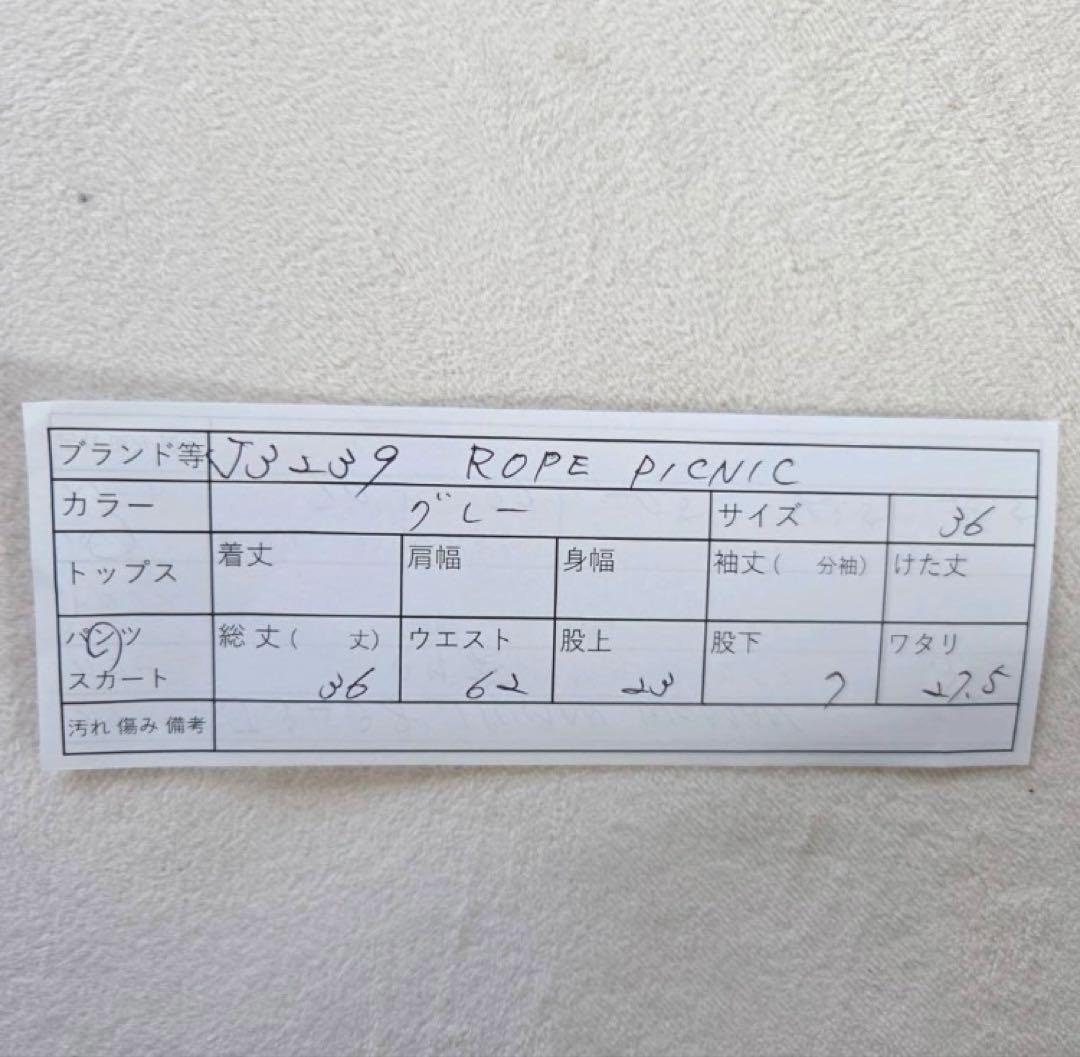 ブランド等 J3239 ROPE PICNIC
カラー グレー サイズ 36
トップス 着丈 肩幅 身幅 袖丈( 分袖) けた丈
パンツ 総丈( 丈) ウエスト 股上 股下 ワタリ
スカート 36 62 23 7 27.5
汚れ 傷み 備考